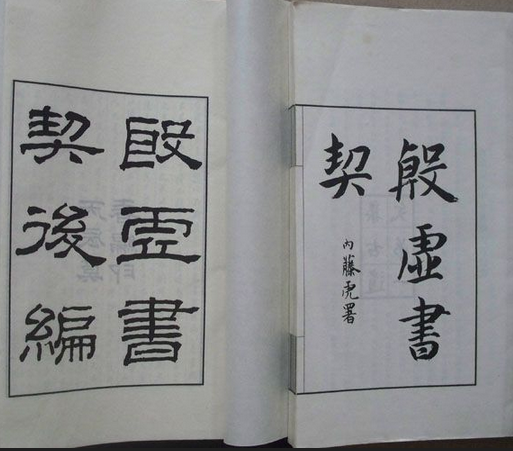 殷虛書
契
内藤虎署
殷虛書
契後編